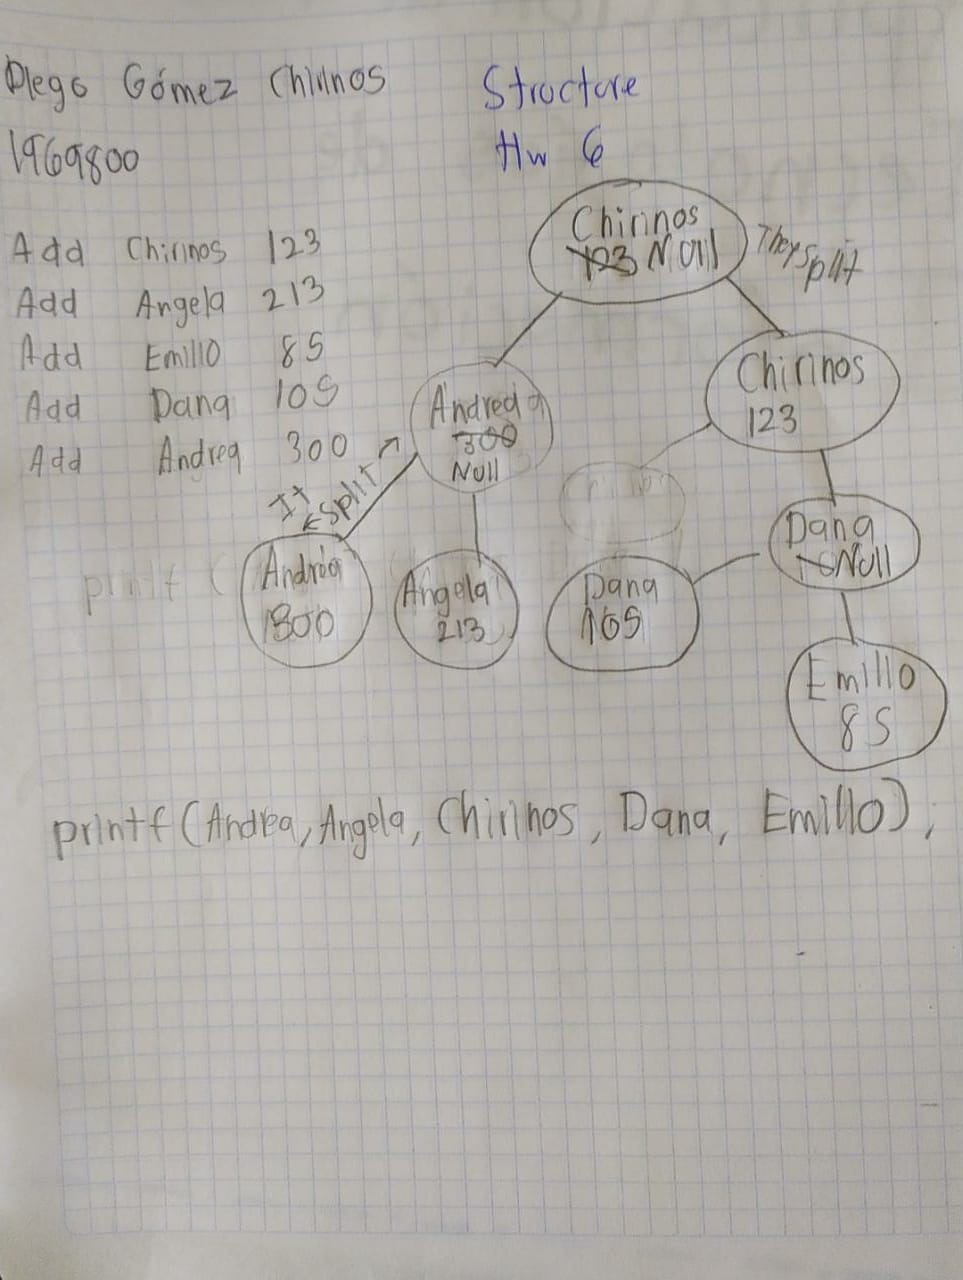 Diego Gómez Chirinos
1969800
Structure
Hw 6
Add Chirinos 123
Add Angela 213
Add Emilio 85
Add Dana 105
Add Andrea 300
Chirinos
123 Null
They split
Andrea
300
Null
Chirinos
123
It split
Andrea
300
Angela
213
Dana
105
Dana
Null
Emilio
85
printf (
printf(Andrea, Angela, Chirinos, Dana, Emilio);